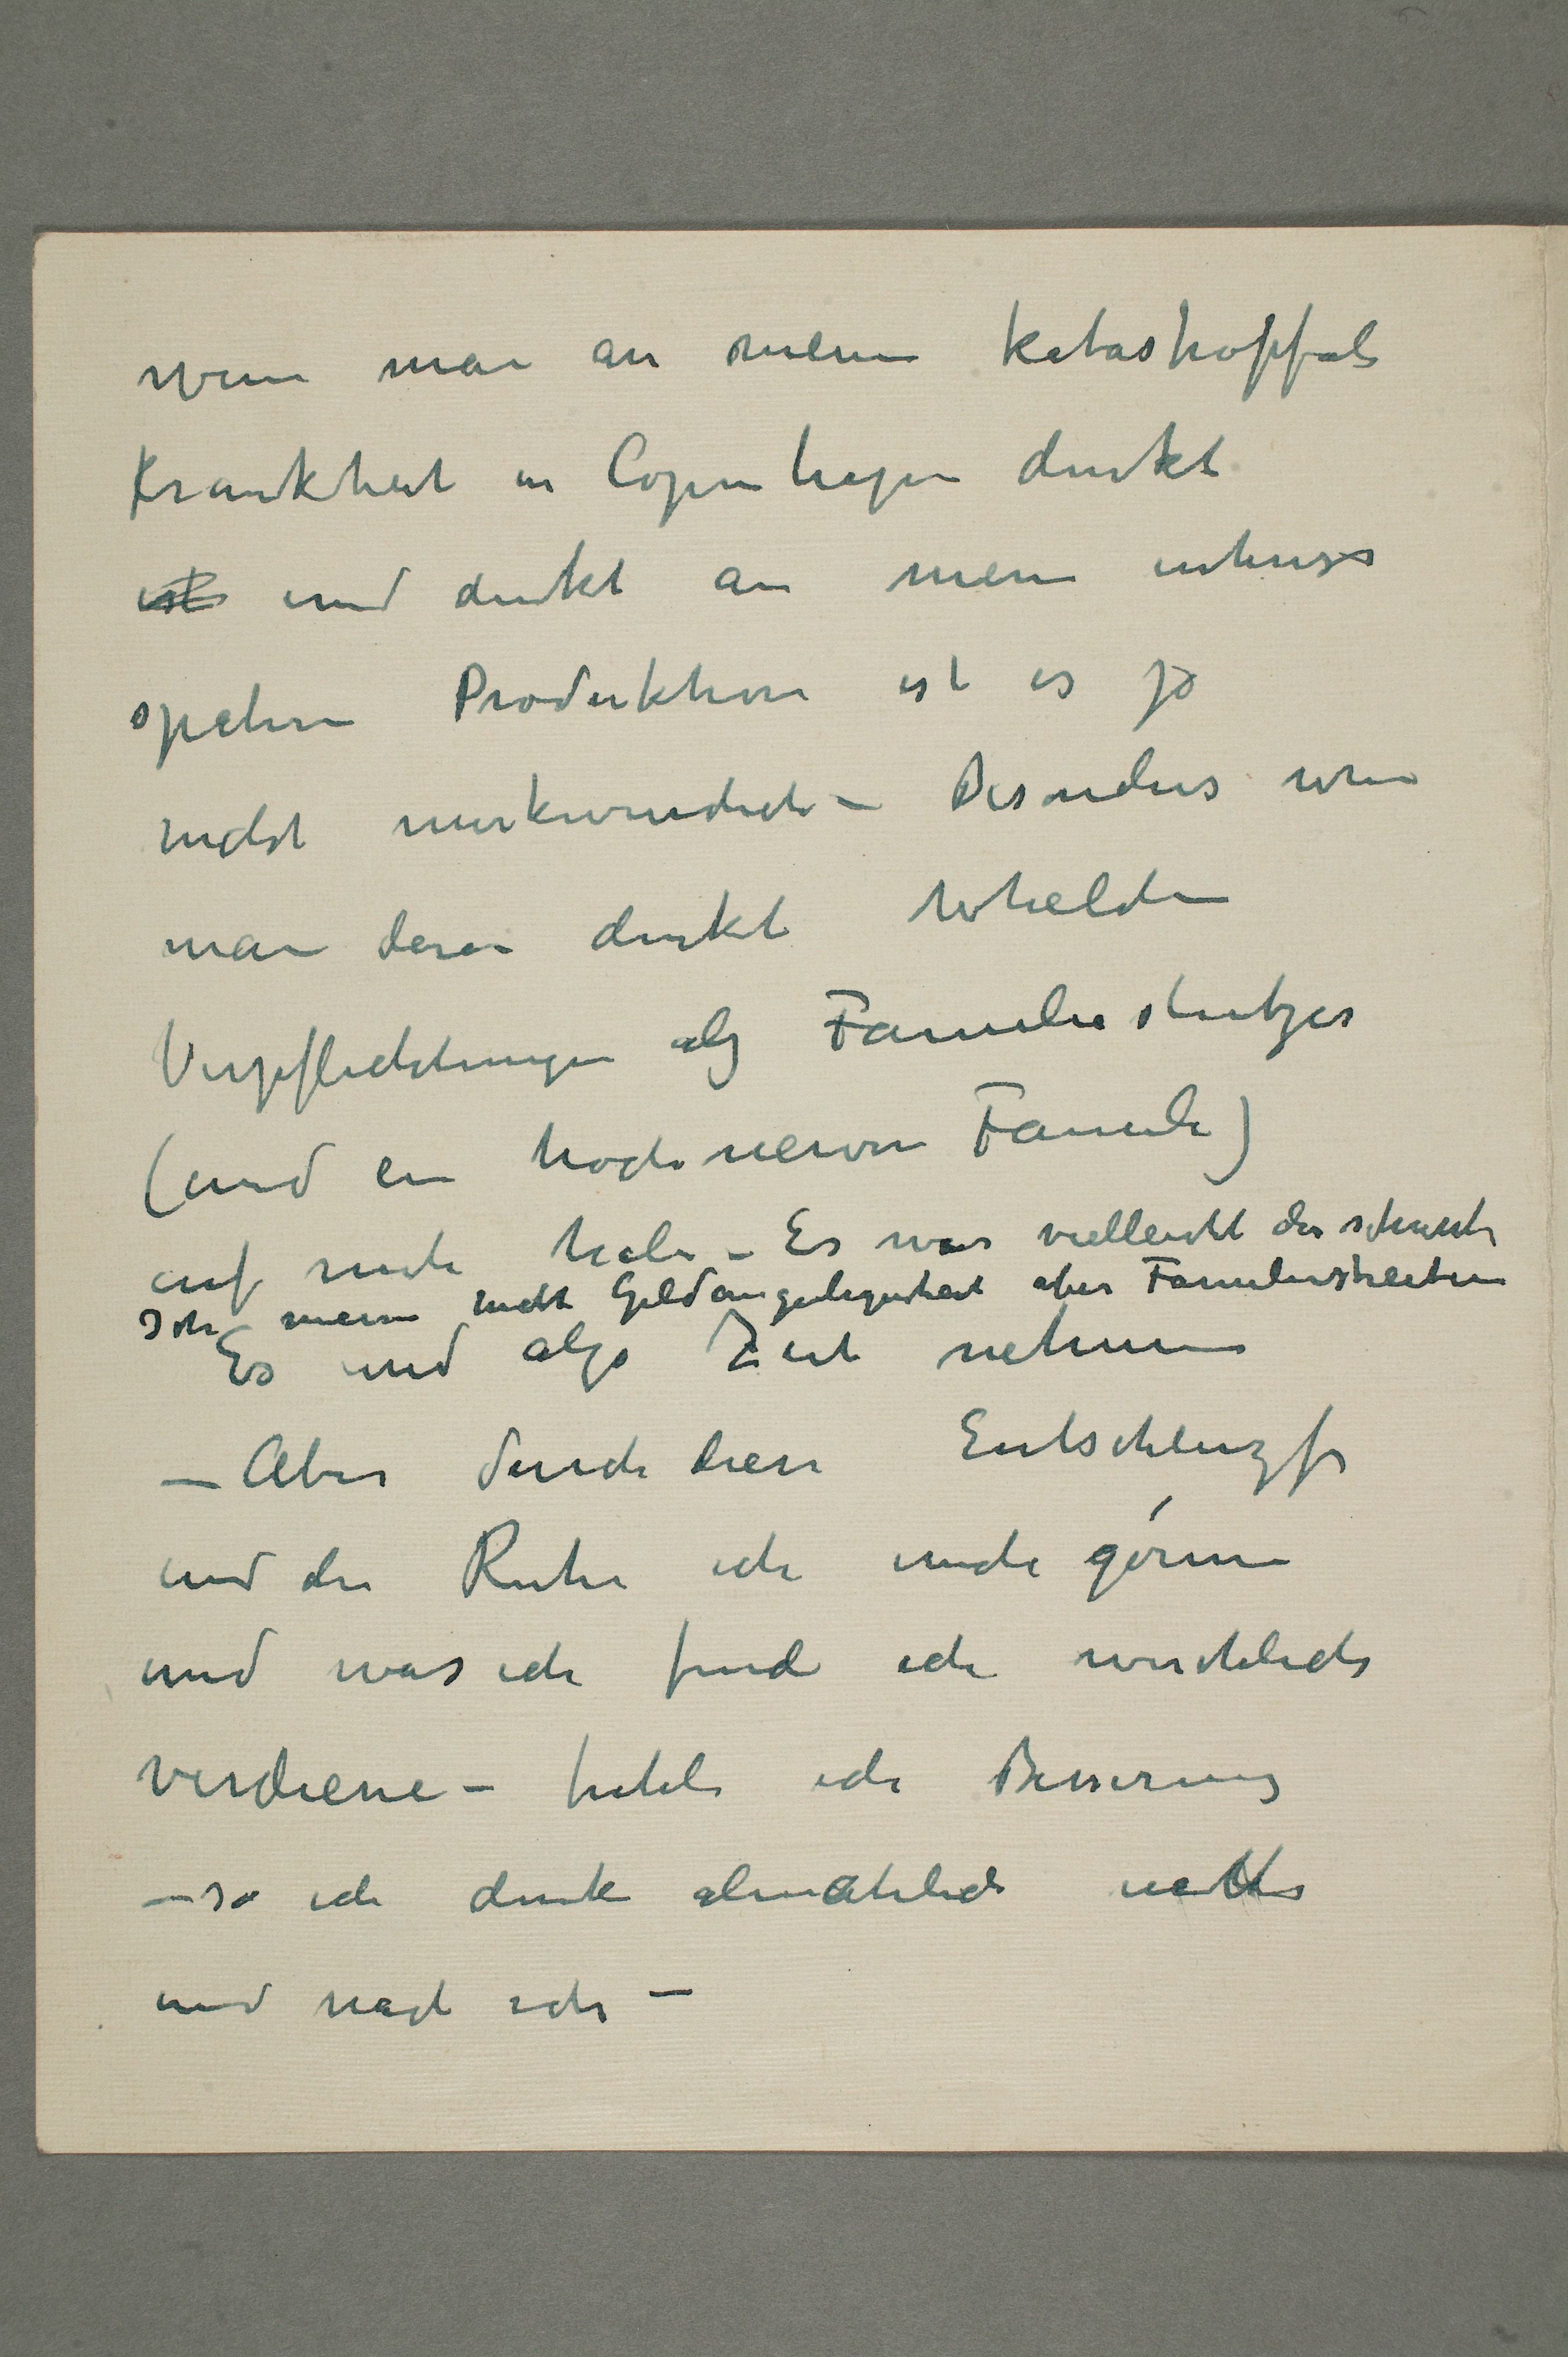 wenn man an meine katastroffale
Krankheit in Copenhagen denkt
ist und denkt an meine intensse
spetere Produktion ist es ja
nicht merkwürdich – Besonders wenn
man daran denkt welche
Verpflichtungen als Familiestutzer
(und ein hochnervøse Familie)
auf mich habe – Es war vielleicht das schwerste
Ich meine nicht Geldangelegenheit aber Familienstreiten
Es und also Zeit nehmen
– Aber durch diese Entschlusse
und die Ruhe ich mich gönne
und was ich finde ich wirchlich
verdiene – fuhle ich Besserung
– so ich denke almählich
und nach ich –